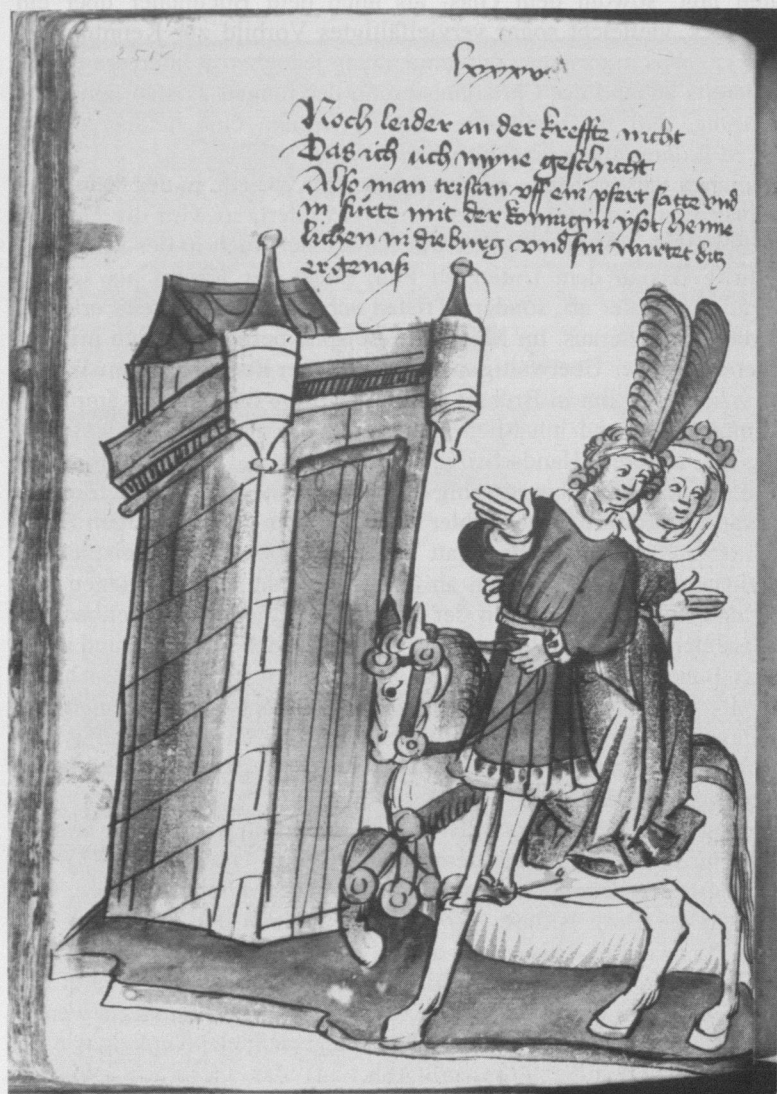 lxxxv
Noch leider an der kreffte nicht
Das ich uch myne geschicht
Also man tristan vff ein pfert satte vnd
in furte mit der konnigin ysot heime
lichen in die burg vnd sin wartet bitz
er genaß